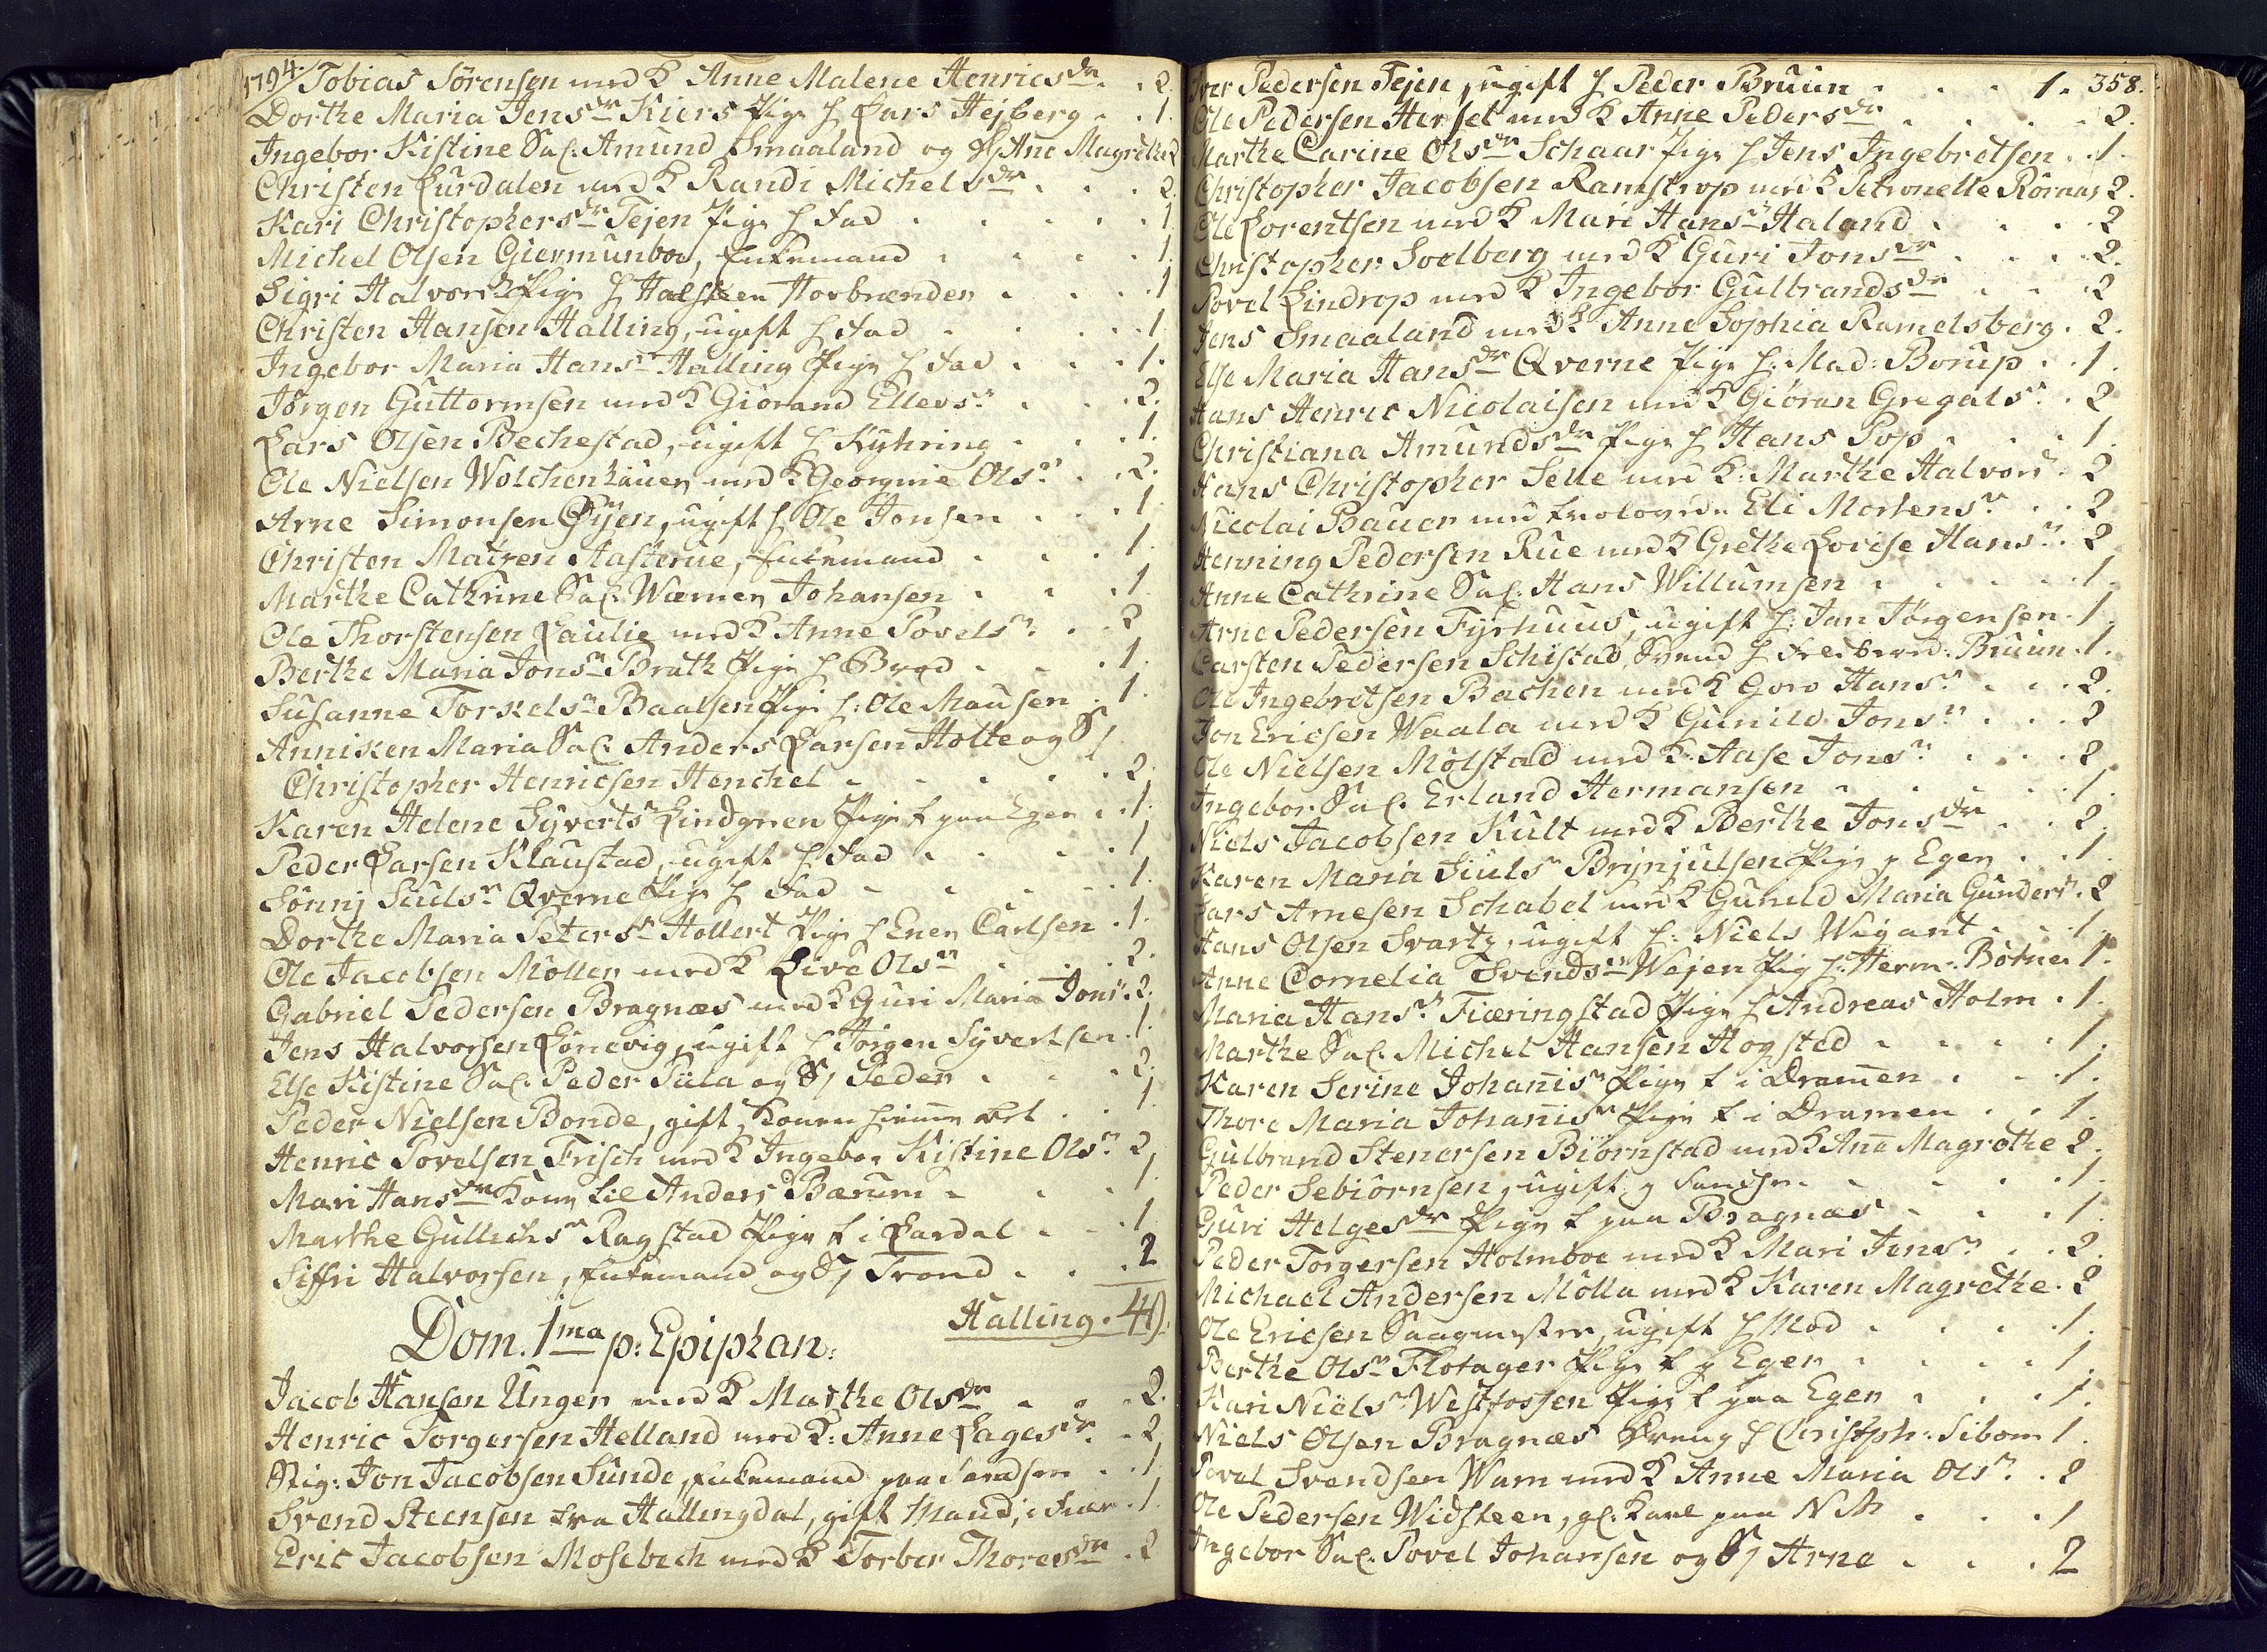 1794.
Tobias Sørensen med K Anne Malene Henricsdr . 2.
Dorthe Maria Jensdr Kiers Pige h Lars Hejberg . . 1.
Ingebor Kistine Sal. Amund Smaaland og Ane Magrethe 2
Christen Lurdalen med K Randi Michelsdr . . . 2.
Kari Christophersdr Tejen Pige h Fad . . . . 1
Michel Olsen Giermunboe, Enkemand . . . . 1.
Sigri Halvors Pige h Halsteen Hovbrenden . . . 1
Christen Hansen Halling, ugift h Fad . . . . 1.
Ingebor Maria Hans Halling Pige h Fad . . . 1.
Jørgen Guttormsen med K Giörand Ellevs . . . 2.
Lars Olsen Bechestad, ugift h Kyhring . . . 1.
Ole Nielsen Wolchenhauer med K Georgine Ols . . 2.
Arne Simonsen Øyen, ugift h Ole Jonsen . . . 1.
Christen Matren Aasterue, Enkemand . . . 1.
Marthe Cathrine Sal. Wærner Johansen . . . 1
Ole Thorstensen Paulie med K Anne Povels . . 2
Berthe Maria Jons Brath Pige h Brod . . . 1.
Susanne Torkels Baalsen Pige h: Ole Mausen . 1.
Annisken Maria Sal. Anders Larsen Holte og S
Christopher Henricsen Henchel . . . . . 2.
Karen Helene Syverts Lindgreen Pige f paa Eger . . 1.
Peder Larsen Klaustad, ugift h Fad . . . . 1
Sönnj Siuls Qverne Pige h Fad . . . . . 1.
Dorthe Maria Peters Hollert Pige h Enen Carlsen . 1.
Ole Jacobsen Möller med K Live Ols . . . 2.
Gabriel Pedersen Bragnæs med K Guri Maria Jons . 2.
Jens Halvorsen Lönevig, ugift h Jörgen Syvertsen . 1.
Else Kistine Sal. Peder Piila og S Peder . . . 2.
Peder Nielsen Bonde, gift, Konen hiemme . . 1
Henric Povelsen Frisch med K Ingebor Kistine Ols 2.
Mari Hansdr Kone til Anders Bærum . . . 1.
Marthe Gullichs Ragstad Pige f i Lardal . . . 1
Siffri Halvorsen, Enkemand og S Trond . . . 2
Halling . 49.
Dom. 1ma p: Epiphan:
Jacob Hansen Unger med K Marthe Olsdr . . . 2.
Henric Torgersen Helland med K: Anne Lagesdr . 2.
Sig: Jon Jacobsen Sunde, Enkemand paa Sandsen . . 1.
Svend Steensen fra Hallingdal, gift Mand, i . 1.
Eric Jacobsen Mosebech med K Torber Thoresdr . 2
Iver Pedersen Tejen, ugift h Peder Bruun . . . 1. 358.
Ole Pedersen Hersel med K Anne Pedersdr . . . 2.
Marthe Carine Olsdr Schaar Pige h Jens Ingebretsen . 1.
Christopher Jacobsen Ramstrop med K Petronelle Röraas 2.
Ole Lorentsen med K Mari Hans Haland . . . 2
Christopher Soelberg med K Guri Jonsdr . . . 2.
Povel Lindrop med K Ingebor Gulbrandsdr . . 2
Jens Smaaland med K Anne Sophia Ramelsberg . 2.
Else Maria Hansdr Qverne Pige h: Mad: Borup . . 1.
Hans Henric Nicolaisen med K Giöran Gregals . 2
Christiana Amundsdr Pige h Hans Pop . . . 1.
Hans Christopher Selle med K: Marthe Halvors . 2
Nicolai Bauer med trolovede Eli Mortens . . 2
Henning Pedersen Rue med K Grethe Lovise Hans . 2
Anne Cathrine Sal. Hans Willumsen . . . . 1.
Arne Pedersen Fyrhuus, ugift h: Jan Jørgensen . 1.
Carsten Pedersen Schistad, Svend h Bruun . 1.
Ole Ingebretsen Bachen med K Goro Hans . . . 2.
Jon Ericsen Waala med K Gunild Jons . . . 2
Ole Nielsen Mølstad med K: Aase Jons . . . 2
Ingebor Sal. Erland Hermansen . . . . 1.
Niels Jacobsen Kult med K Berthe Jonsdr . . 2.
Karen Maria Siuls Brynjulsen Pige p Eger . . 1.
Lars Arnesen Schabel med K Gunild Maria Gunders . 2
Hans Olsen Svartz, ugift h: Niels Wigant . . . 1.
Anne Cornelia Svendsdr Wejen Pig h: Herm: Böhne 1.
Maria Hans Fiæringstad Pige h Andreas Holm . 1.
Marthe Sal. Michel Hansen Hogsted . . . . 1.
Karen Serine Johannis Pige f i Dramen . . . 1.
Thore Maria Johannis Pige f i Dramen . . 1.
Gulbrand Stenersen Biörnstad med K Ane Magrethe 2.
Peder Sebiörnsen, ugift, p Sandsn . . . . 1.
Guri Helgesdr Pige f paa Bragnæs . . . . 1.
Peder Torgersen Holmboe med K Mari Jens . . 2.
Michael Andersen Mölla med K Karen Magrethe . 2
Ole Ericsen Saugmester, ugift h Mod . . . . 1.
Berthe Ols Flotager Pige f p Eger . . . . 1.
Kari Niels Westfossen Pige f paa Eger . . . 1.
Niels Olsen Bragnæs Dreng h Christph: Sibom 1.
Povel Svendsen Warn med K Anne Maria Ols . 2
Ole Pedersen Widsteen, gl. Karl paa . . . 1
Ingebor Sal. Povel Johansen og S Arne . . . 2